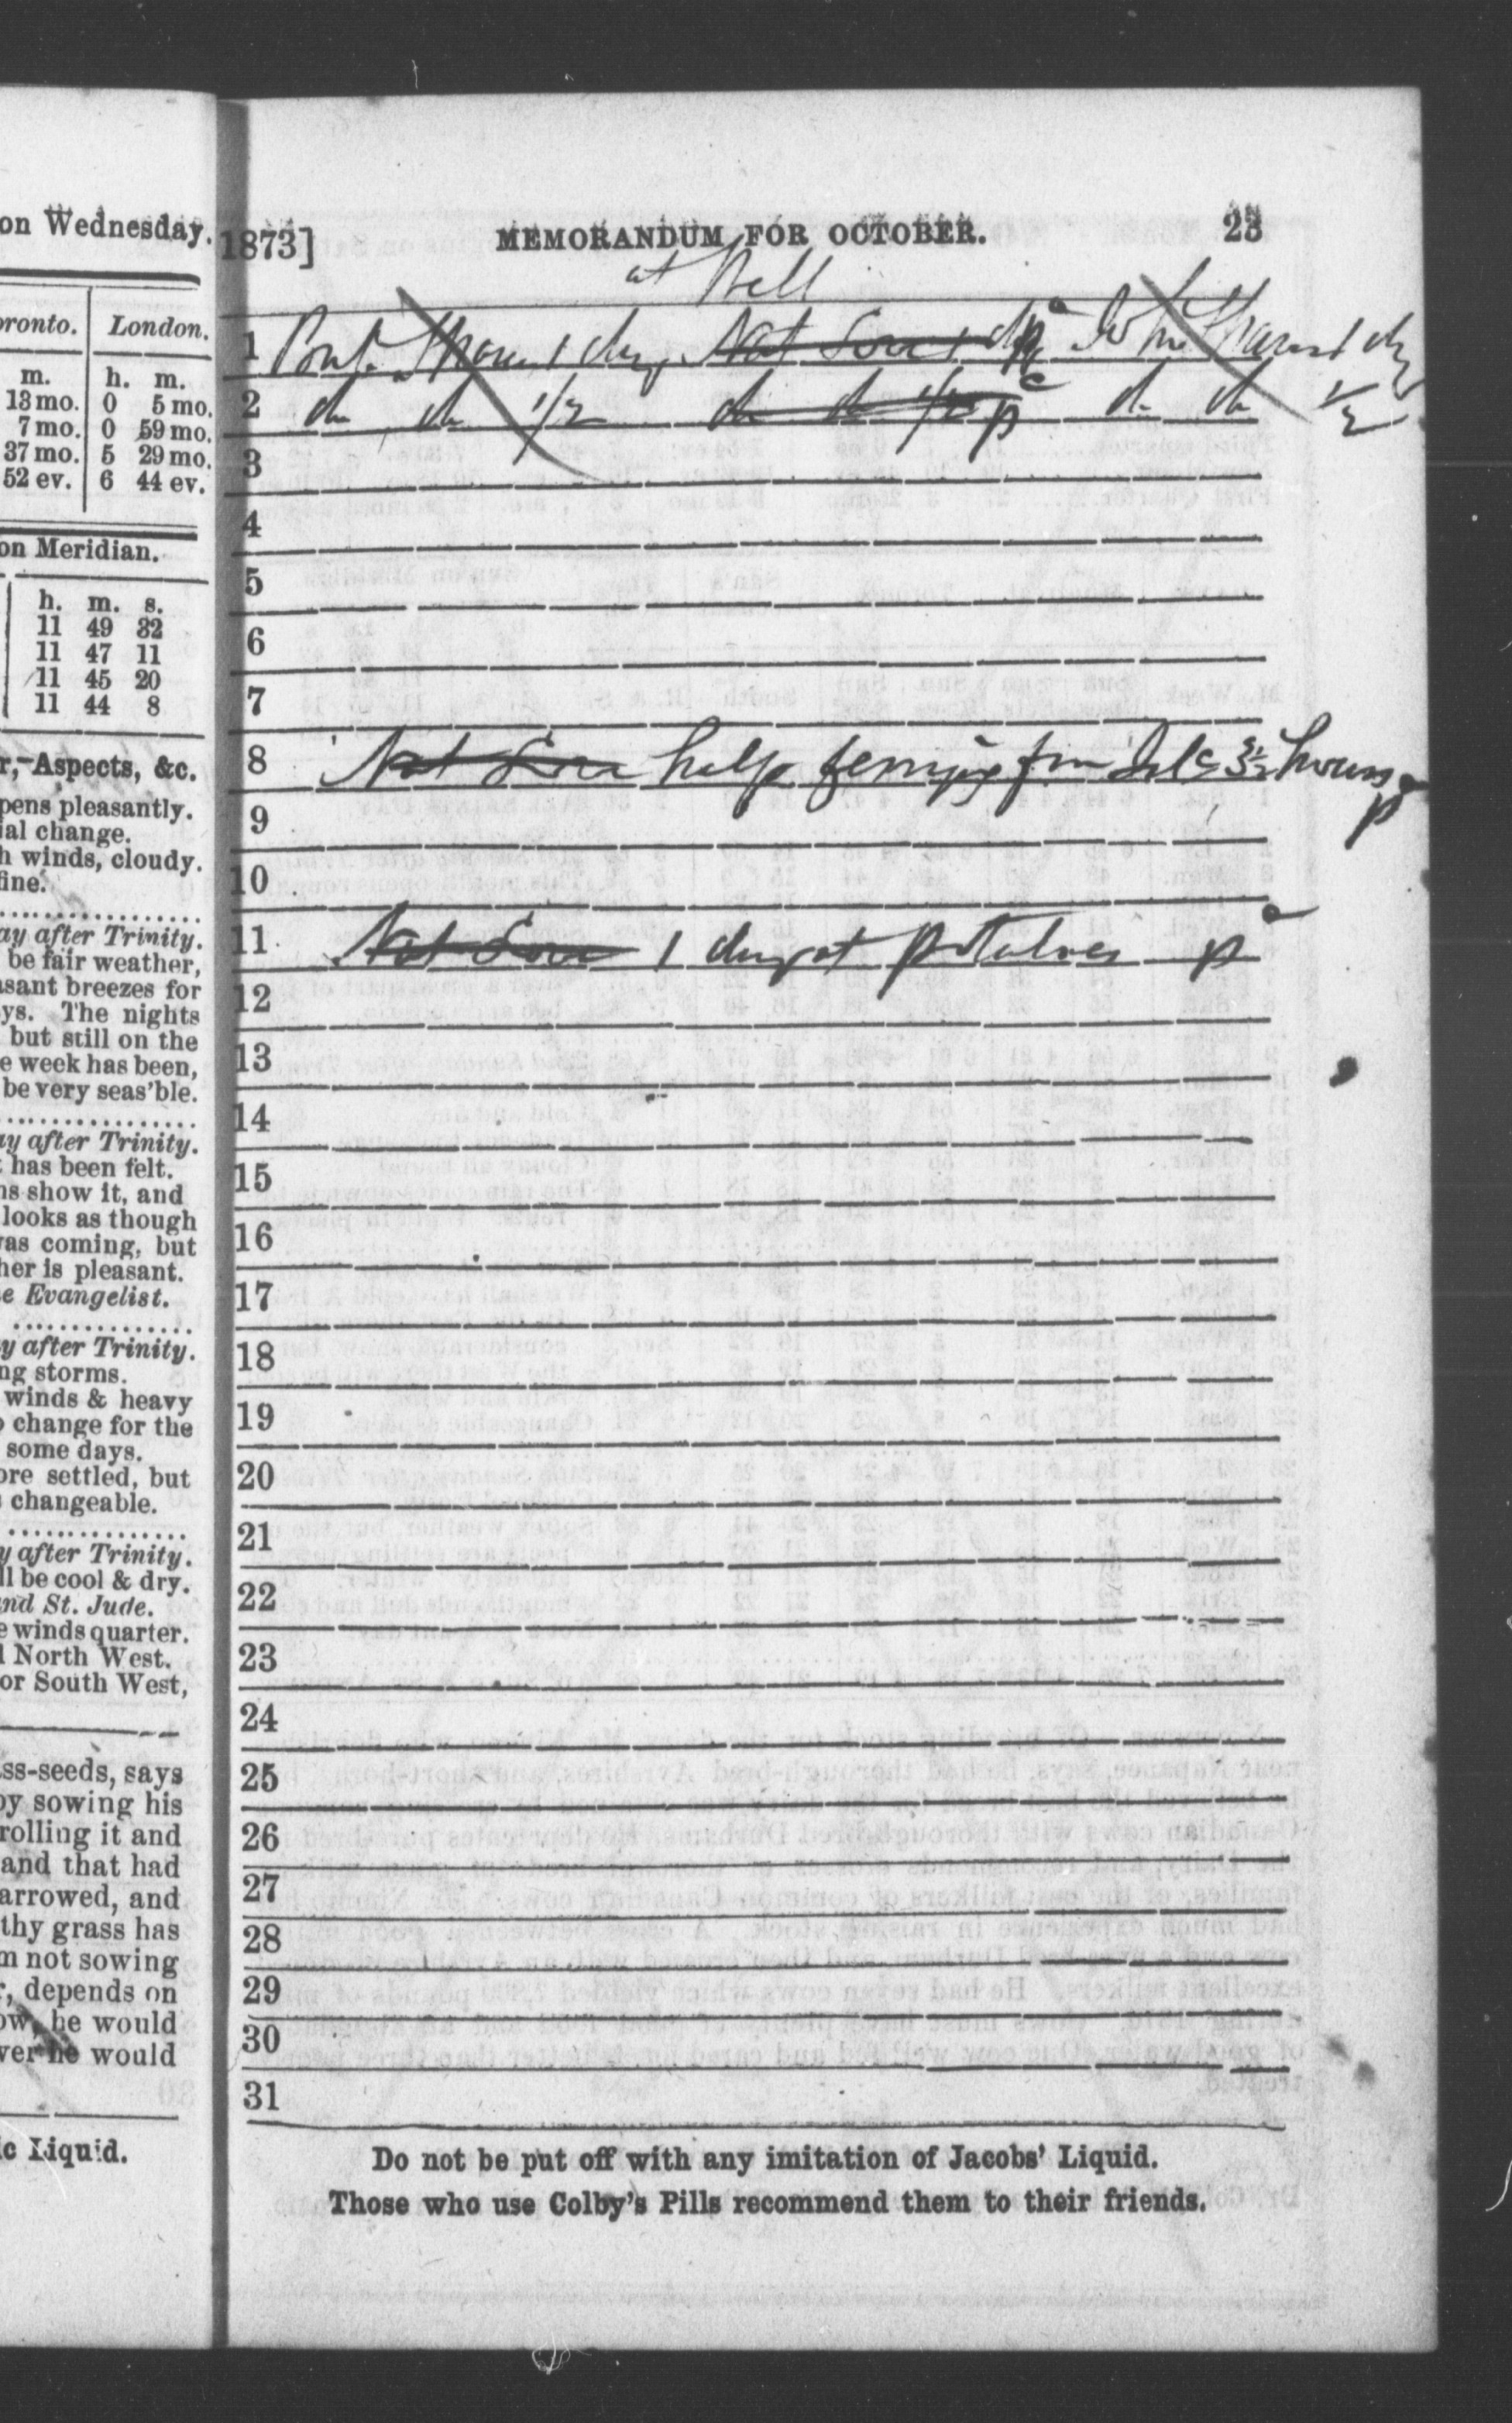 on Wednesday.
oronto. London.
m. h. m.
13 mo. 0 5 mo.
7 mo. 0 59 mo.
37 mo. 5 29 mo.
52 ev. 6 44 ev.
on Meridian.
h. m. s.
11 49 32
11 47 11
11 45 20
11 44 8
r, Aspects, &c.
pens pleasantly.
ial change.
h winds, cloudy.
fine.
ay after Trinity.
be fair weather,
asant breezes for
ys. The nights
but still on the
e week has been,
be very seas'ble.
ay after Trinity.
t has been felt.
ns show it, and
looks as though
was coming, but
her is pleasant.
e Evangelist.
y after Trinity.
ng storms.
winds & heavy
o change for the
some days.
ore settled, but
changeable.
y after Trinity.
ll be cool & dry.
and St. Jude.
e winds quarter.
d North West.
or South West,
ss-seeds, says
by sowing his
rolling it and
and that had
arrowed, and
thy grass has
m not sowing
r, depends on
ow, he would
ver he would
ic Liquid.
1873] MEMORANDUM FOR OCTOBER. 23
at Bell
1 1 day Nat 1 John 1 day
2 do do 1/2 do do 1/2 p do do 1/2
3
4
5
6
7
8 Nat help 3 1/2 hours
p
9
10
11 Nat 1 day at potatoes p
12
13
14
15
16
17
18
19
20
21
22
23
24
25
26
27
28
29
30
31
Do not be put off with any imitation of Jacobs' Liquid.
Those who use Colby's Pills recommend them to their friends.